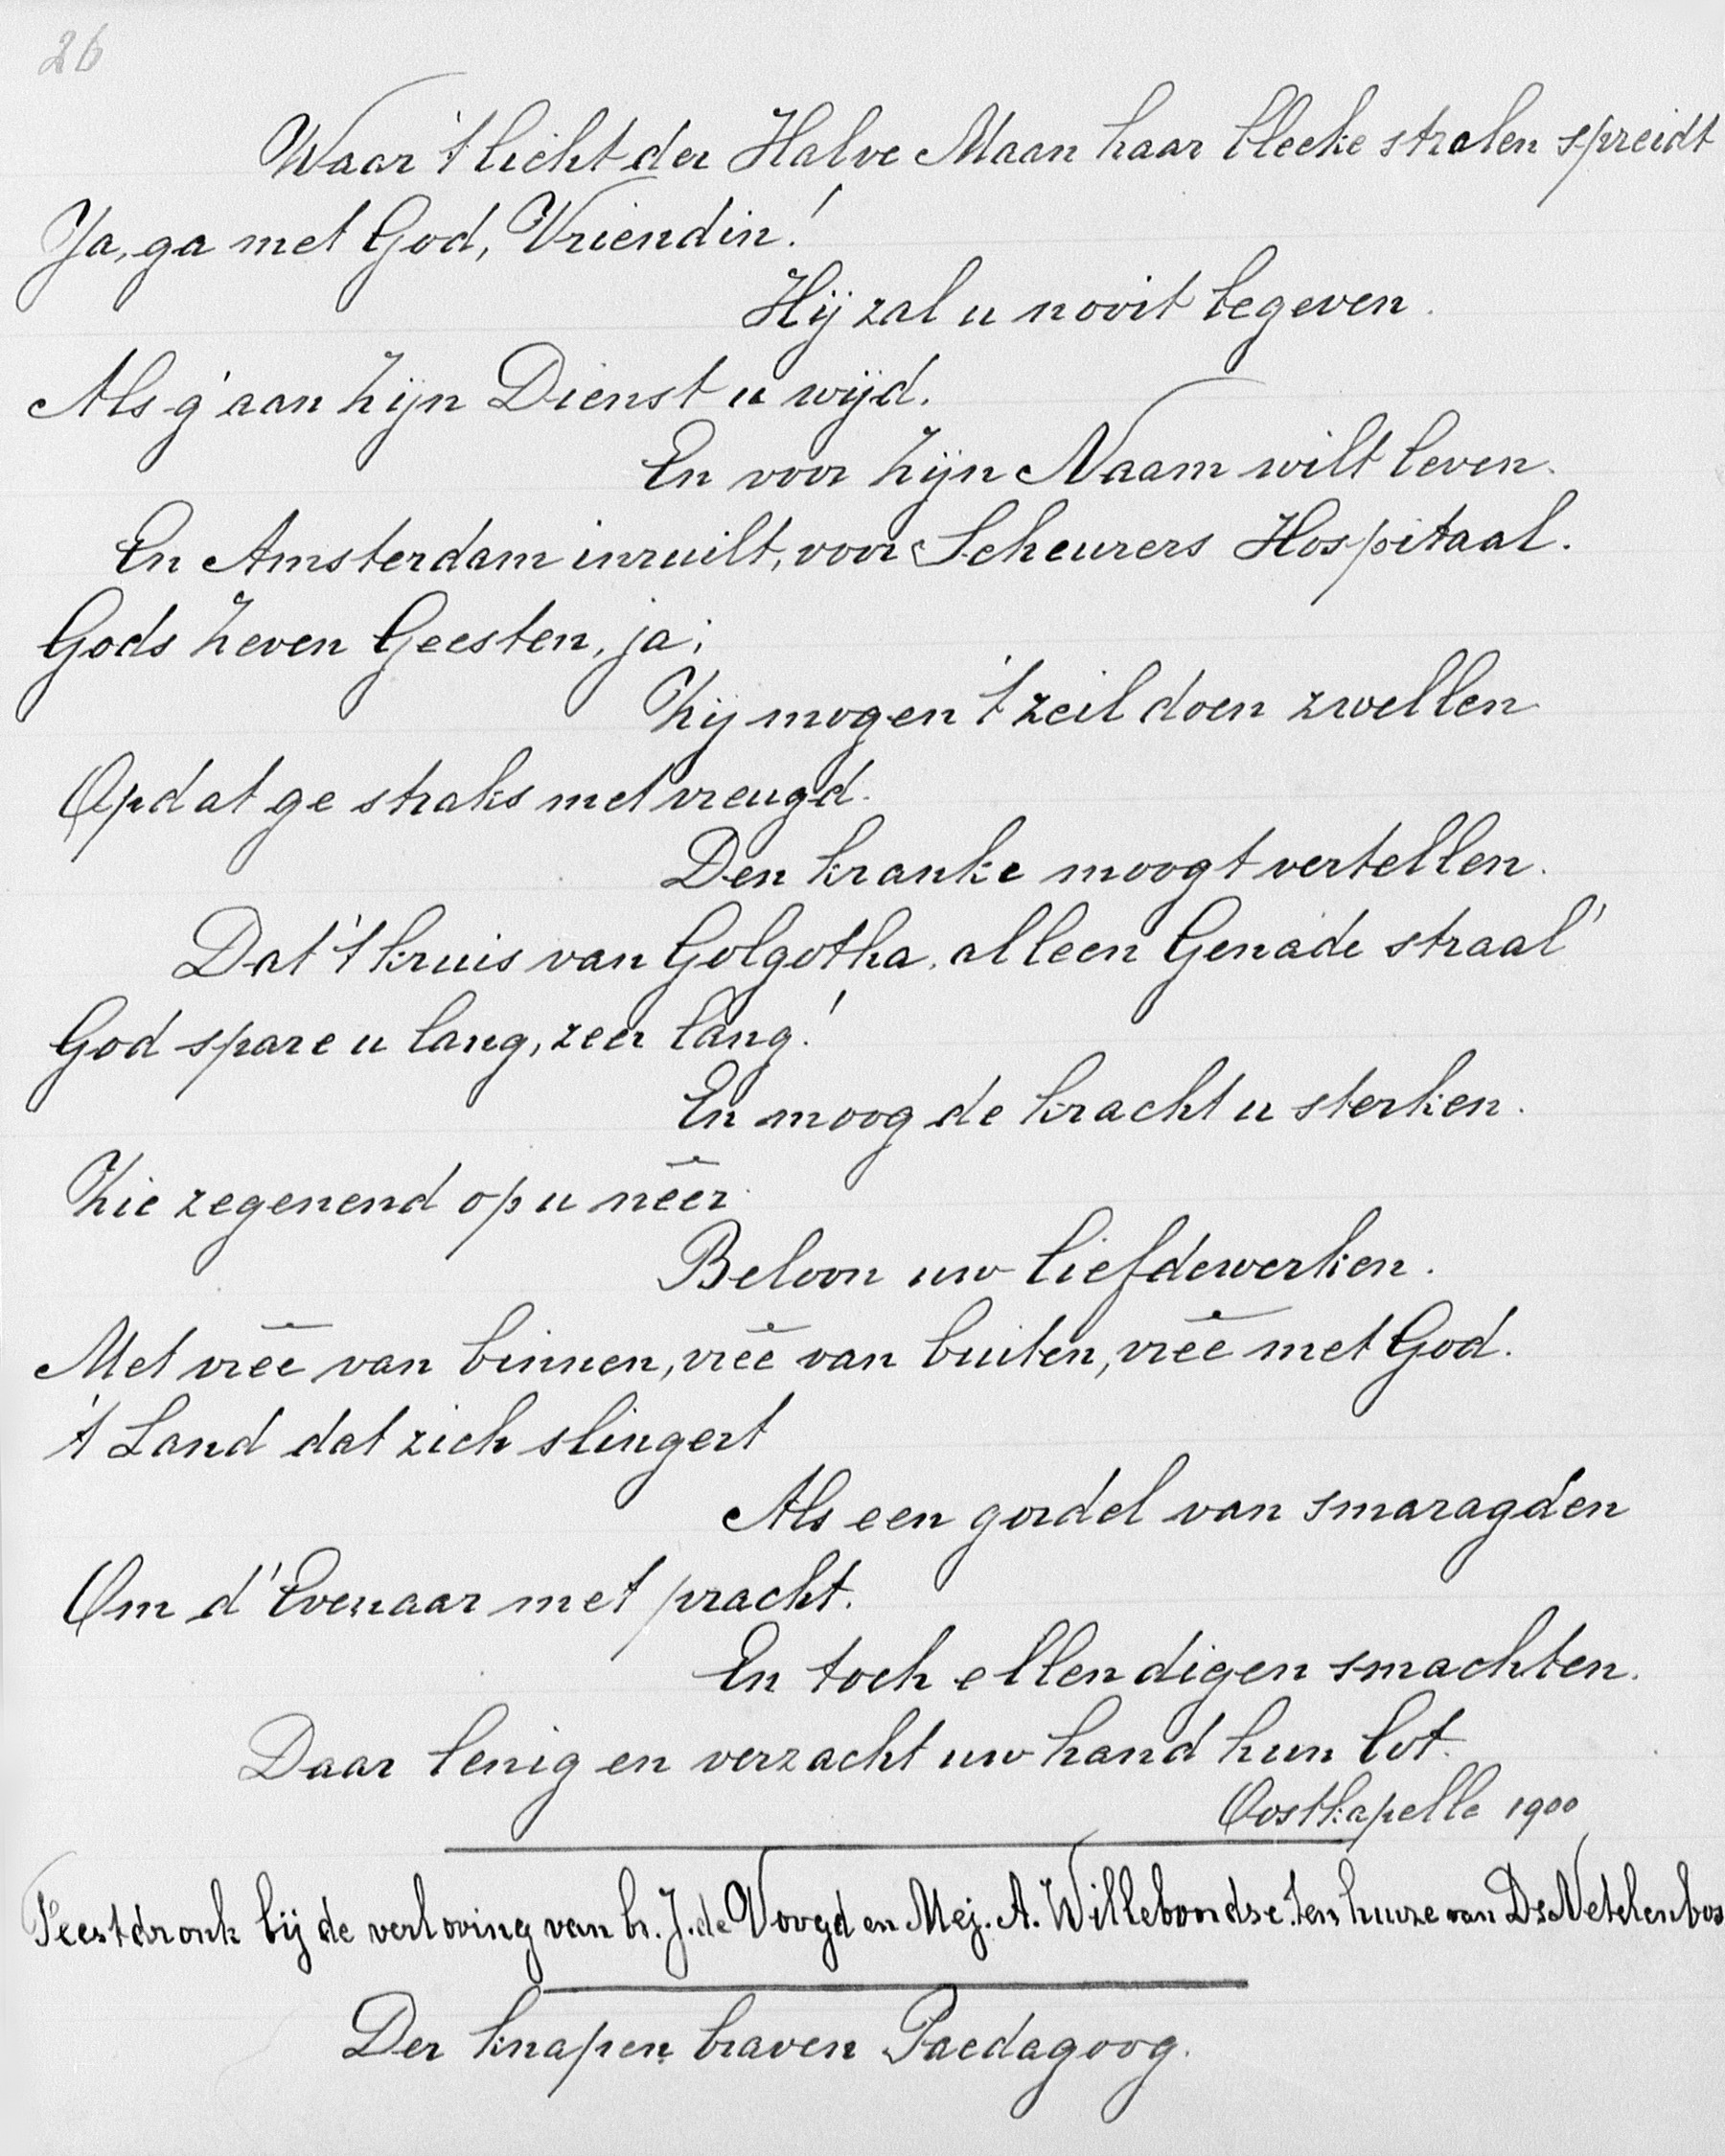 26
Waar 't licht der Halve Maan haar bleeke stralen spreidt
Ja, ga met God, Vriendin!
Hij zal u nooit begeven.
Als g' aan Zijn Dienst u wijd.
En voor Zijn Naam wilt leven.
En Amsterdam inruilt, voor Scheurers Hospitaal.
Gods Zeven Geesten, ja;
Zij mogen 't zeil doen zwellen
Opdat ge straks met vreugd.
Den kranke moogt vertellen.
Dat 't kruis van Golgotha, alleen Genade straal'
God spare u lang, zeer lang!
En moog de kracht u sterken.
Zie zegenend op u nêer.
Beloon uw liefdewerken.
Met vrêe van binnen, vrêe van buiten, vrêe met God.
't Land dat zich slingert
Als een gordel van smaragden
Om d' Evenaar met pracht.
En toch ellendigen smachten.
Daar lenig en verzacht uw hand hun lot.
Oostkapelle 1900
Feestdronk bij de verloving van br. J. de Voogd en Mej. A. Willeboordse. ten huize van Ds Netelenbos
Der knapen braven Paedagoog.